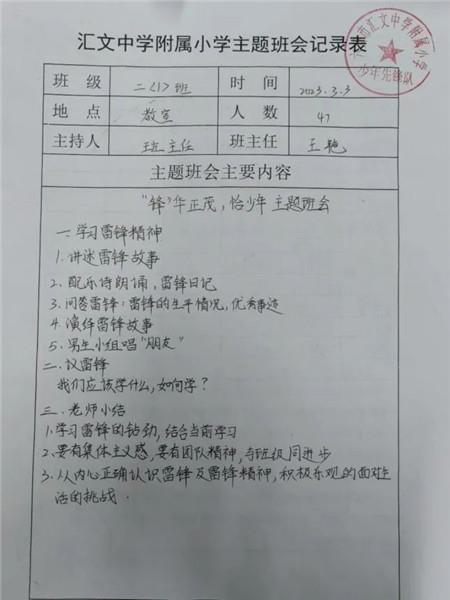 汇文中学附属小学主题班会记录表
市汇文中学附属小学
少年先锋队
班 级 二〈1〉班 时 间 2023.3.3
地 点 教室 人 数 47
主持人 班主任 班主任 王艳
主题班会主要内容
"锋"华正茂,恰少年 主题班会
一. 学习雷锋精神
1. 讲述雷锋故事
2. 配乐诗朗诵,雷锋日记
3. 问答雷锋:雷锋的生平情况,优秀事迹
4. 演绎雷锋故事
5. 男生小组唱"朋友"
二. 议雷锋
我们应该学什么,如何学?
三. 老师小结
1. 学习雷锋的钻劲,结合当前学习
2. 要有集体主义感,要有团队精神,与班级同进步
3. 从内心正确认识雷锋及雷锋精神,积极乐观的面对生
活的挑战.